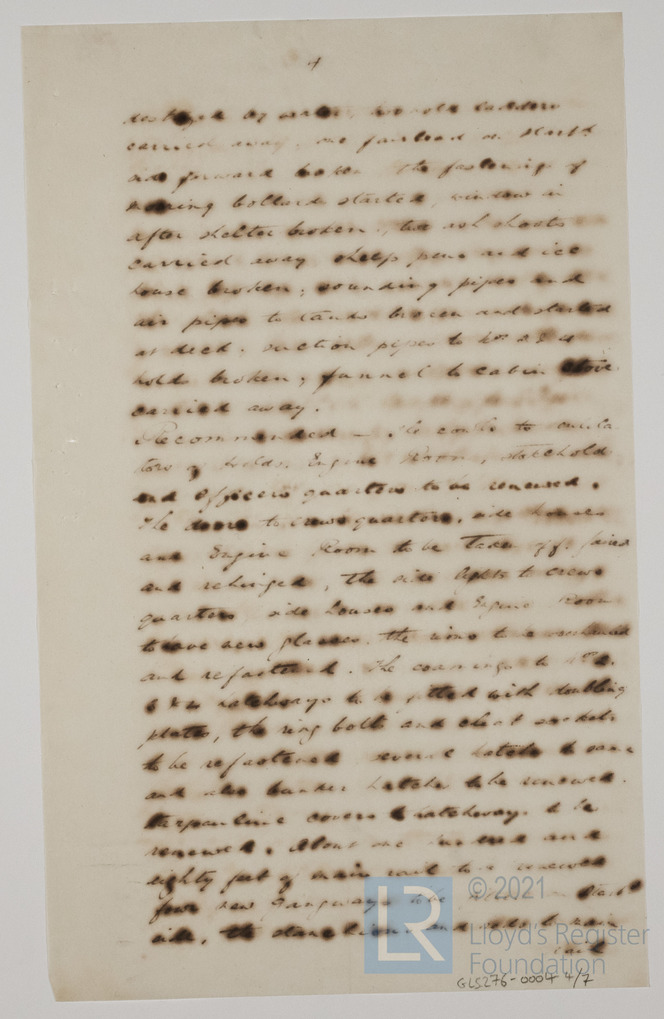 4
by water,
carried away, one fairlead on Starbd
side forward broken, the fastening of
mooring bollard started, window in
after shelter broken, two ash shoots
carried away sheep pens and ice
house broken, sounding pipes and
air pipes to tanks broken and started
at deck. suction pipes to Nos
holds broken, funnel to cabin stove
carried away.
Recommended – The cowls to ventila
tors of Holds, Engine Room, stokehold
and Officers quarters to be renewed.
The doors to crews quarters, side houses
and Engine Room to be taken off, faired
and rehinged, the side lights to crews
quarters side houses and Engine Room
to have new glasses, the rims to be
and refastened. The coamings to Nos 2.
hatchways to be fitted with doubling
plates, the ring bolts and cleat sockets
to be refastened several hatches to same
and also bunker hatches to be renewed.
tarpauline covers to hatchways to be
renewed. About one hundred and
eighty feet of main rail to be renewed
four new gangways to be Starbd
side, the stanchions and to main
rail
© 2021
LR
Lloyd's Register
Foundation
GLS276-0004 4/7